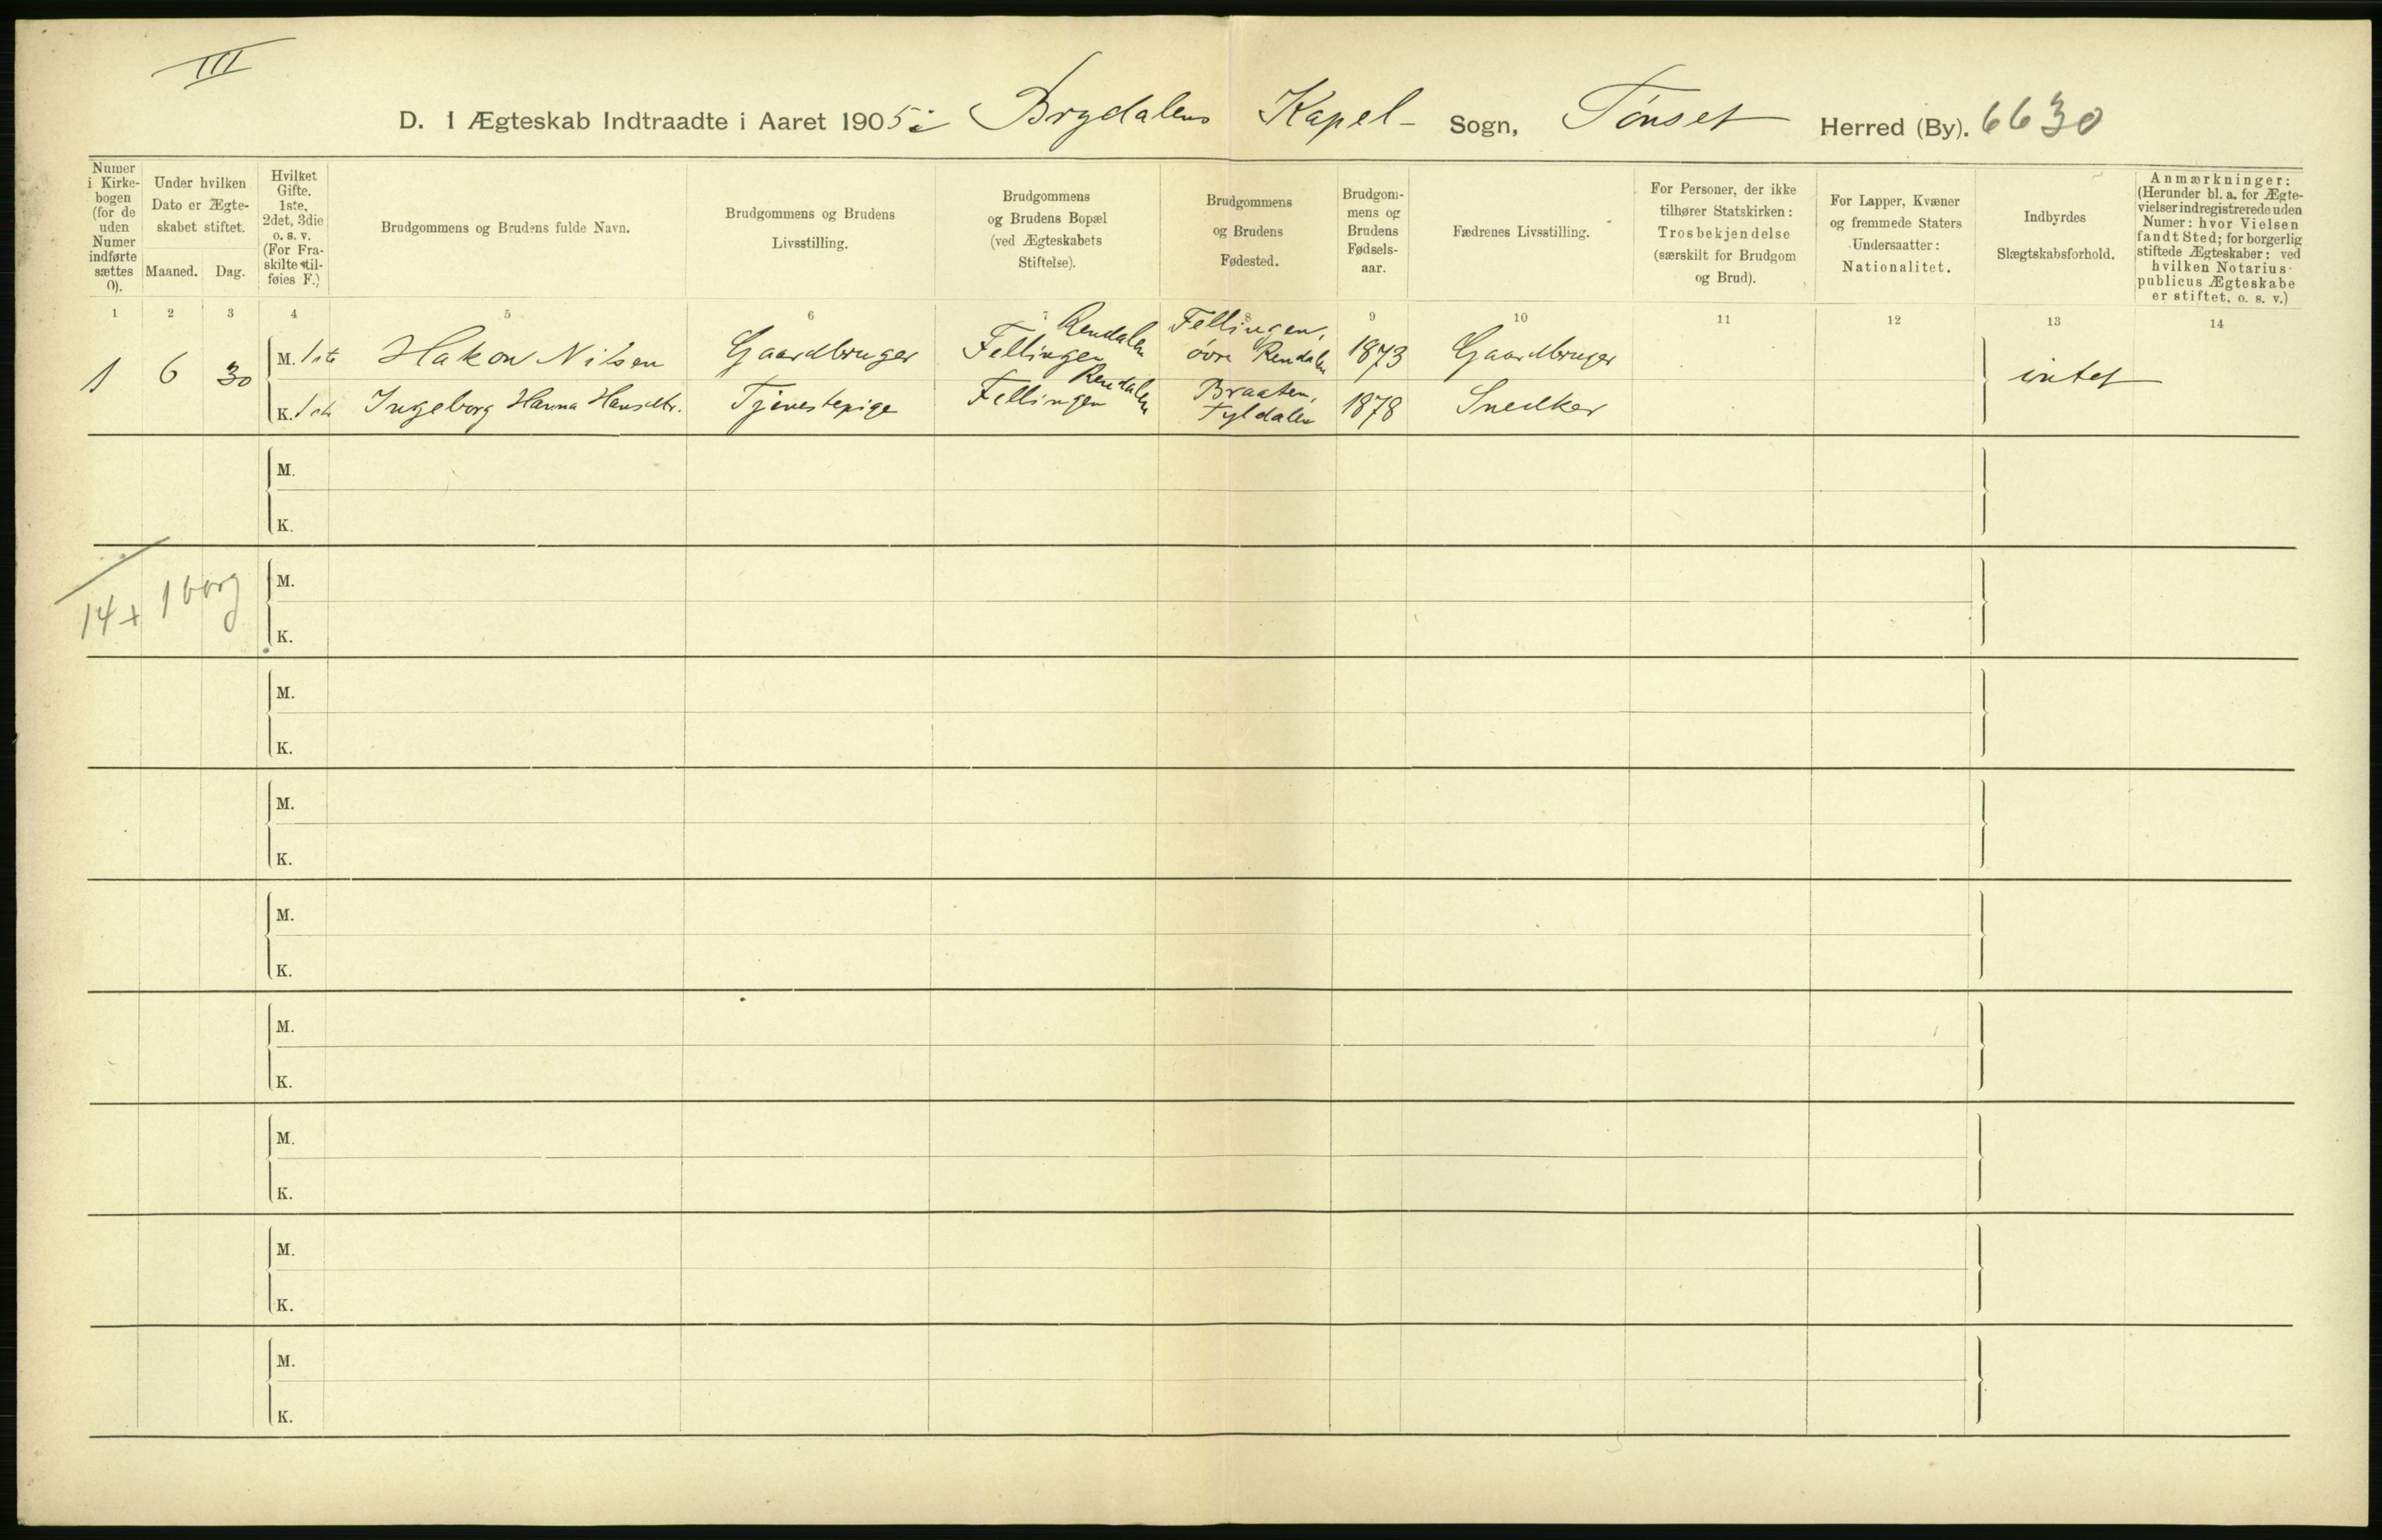 III
D. I Ægteskab Indtraadte i Aaret 1905 i Brydalens Kapel- Sogn, Tönset Herred (By). 6630
Numer i Kirkebogen (for de uden Numer indførte sættes 0).
Under hvilken Dato er Ægteskabet stiftet.
Maaned. Dag.
Hvilket Gifte. 1ste, 2det, 3die o. s. v. (For Fraskilte tilføies F.)
Brudgommens og Brudens fulde Navn.
Brudgommens og Brudens Livsstilling.
Brudgommens og Brudens Bopæl (ved Ægteskabets Stiftelse).
Brudgommens og Brudens Fødested.
Brudgommens og Brudens Fødselsaar.
Fædrenes Livsstilling.
For Personer, der ikke tilhører Statskirken: Trosbekjendelse (særskilt for Brudgom og Brud).
For Lapper, Kvæner og fremmede Staters Undersaatter: Nationalitet.
Indbyrdes Slægtskabsforhold.
Anmærkninger: (Herunder bl. a. for Ægtevielser indregistrerede uden Numer: hvor Vielsen fandt Sted; for borgerlig stiftede Ægteskaber: ved hvilken Notarius publicus Ægteskabe er stiftet, o. s. v.)
1 2 3 4 5 6 7 8 9 10 11 12 13 14
1 6 30 M. 1ste Hakon Nilsen Gaardbruger Fellingen Rendalen Fellingen, övre Rendalen 1873 Gaardbruger intet
K. 1ste Ingeborg Hanna Hansdtr. Tjenestepige Fellingen Rendalen Braaten, Tyldalen 1878 Snedker
M.
K.
14 + 1 borg M.
K.
M.
K.
M.
K.
M.
K.
M.
K.
M.
K.
M.
K.
M.
K.